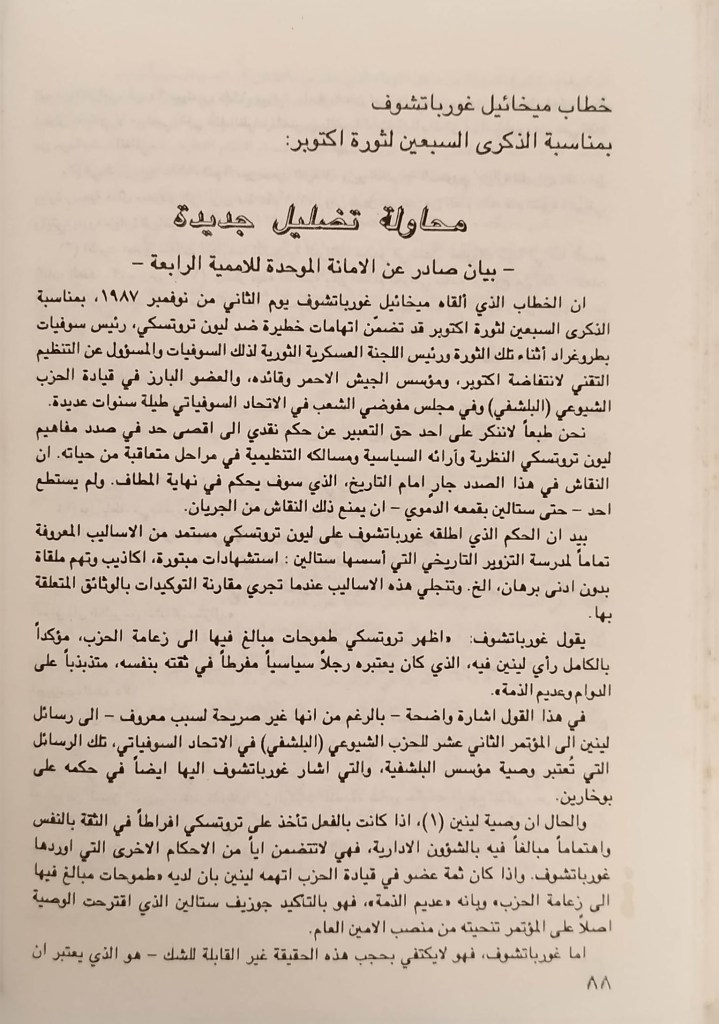 خطاب ميخائيل غورباتشوف
بمناسبة الذكرى السبعين لثورة اكتوبر:
محاولة تضليل جديدة
– بيان صادر عن الامانة الموحدة للاممية الرابعة –
ان الخطاب الذي ألقاه ميخائيل غورباتشوف يوم الثاني من نوفمبر ١٩٨٧، بمناسبة
الذكرى السبعين لثورة اكتوبر قد تضمّن اتهامات خطيرة ضد ليون تروتسكي، رئيس سوفيات
بطروغراد أثناء تلك الثورة ورئيس اللجنة العسكرية الثورية لذلك السوفيات والمسؤول عن التنظيم
التقني لانتفاضة اكتوبر، ومؤسس الجيش الاحمر وقائده، والعضو البارز في قيادة الحزب
الشيوعي (البلشفي) وفي مجلس مفوضي الشعب في الاتحاد السوفياتي طيلة سنوات عديدة.
نحن طبعاً لاننكر على احد حق التعبير عن حكم نقدي الى اقصى حد في صدد مفاهيم
ليون تروتسكي النظرية وآرائه السياسية ومسالكه التنظيمية في مراحل متعاقبة من حياته. ان
النقاش في هذا الصدد جارٍ امام التاريخ، الذي سوف يحكم في نهاية المطاف. ولم يستطع
احد – حتى ستالين بقمعه الدموي – ان يمنع ذلك النقاش من الجريان.
بيد ان الحكم الذي اطلقه غورباتشوف على ليون تروتسكي مستمد من الاساليب المعروفة
تماماً لمدرسة التزوير التاريخي التي أسسها ستالين : استشهادات مبتورة، اكاذيب وتهم ملقاة
بدون ادنى برهان، الخ. وتنجلي هذه الاساليب عندما تجري مقارنة التوكيدات بالوثائق المتعلقة
بها.
يقول غورباتشوف: «اظهر تروتسكي طموحات مبالغ فيها الى زعامة الحزب، مؤكداً
بالكامل رأي لينين فيه، الذي كان يعتبره رجلاً سياسياً مفرطاً في ثقته بنفسه، متذبذباً على
الدوام وعديم الذمة».
في هذا القول اشارة واضحة – بالرغم من انها غير صريحة لسبب معروف – الى رسائل
لينين الى المؤتمر الثاني عشر للحزب الشيوعي (البلشفي) في الاتحاد السوفياتي، تلك الرسائل
التي تُعتبر وصية مؤسس البلشفية، والتي اشار غورباتشوف اليها ايضاً في حكمه على
بوخارين.
والحال ان وصية لينين (١)، اذا كانت بالفعل تأخذ على تروتسكي افراطاً في الثقة بالنفس
واهتماماً مبالغاً فيه بالشؤون الادارية، فهي لاتتضمن اياً من الاحكام الاخرى التي اوردها
غورباتشوف. واذا كان ثمة عضو في قيادة الحزب اتهمه لينين بان لديه «طموحات مبالغ فيها
الى زعامة الحزب» وبانه «عديم الذمة»، فهو بالتأكيد جوزيف ستالين الذي اقترحت الوصية
اصلاً على المؤتمر تنحيته من منصب الامين العام.
اما غورباتشوف، فهو لايكتفي بحجب هذه الحقيقة غير القابلة للشك – هو الذي يعتبر ان
٨٨